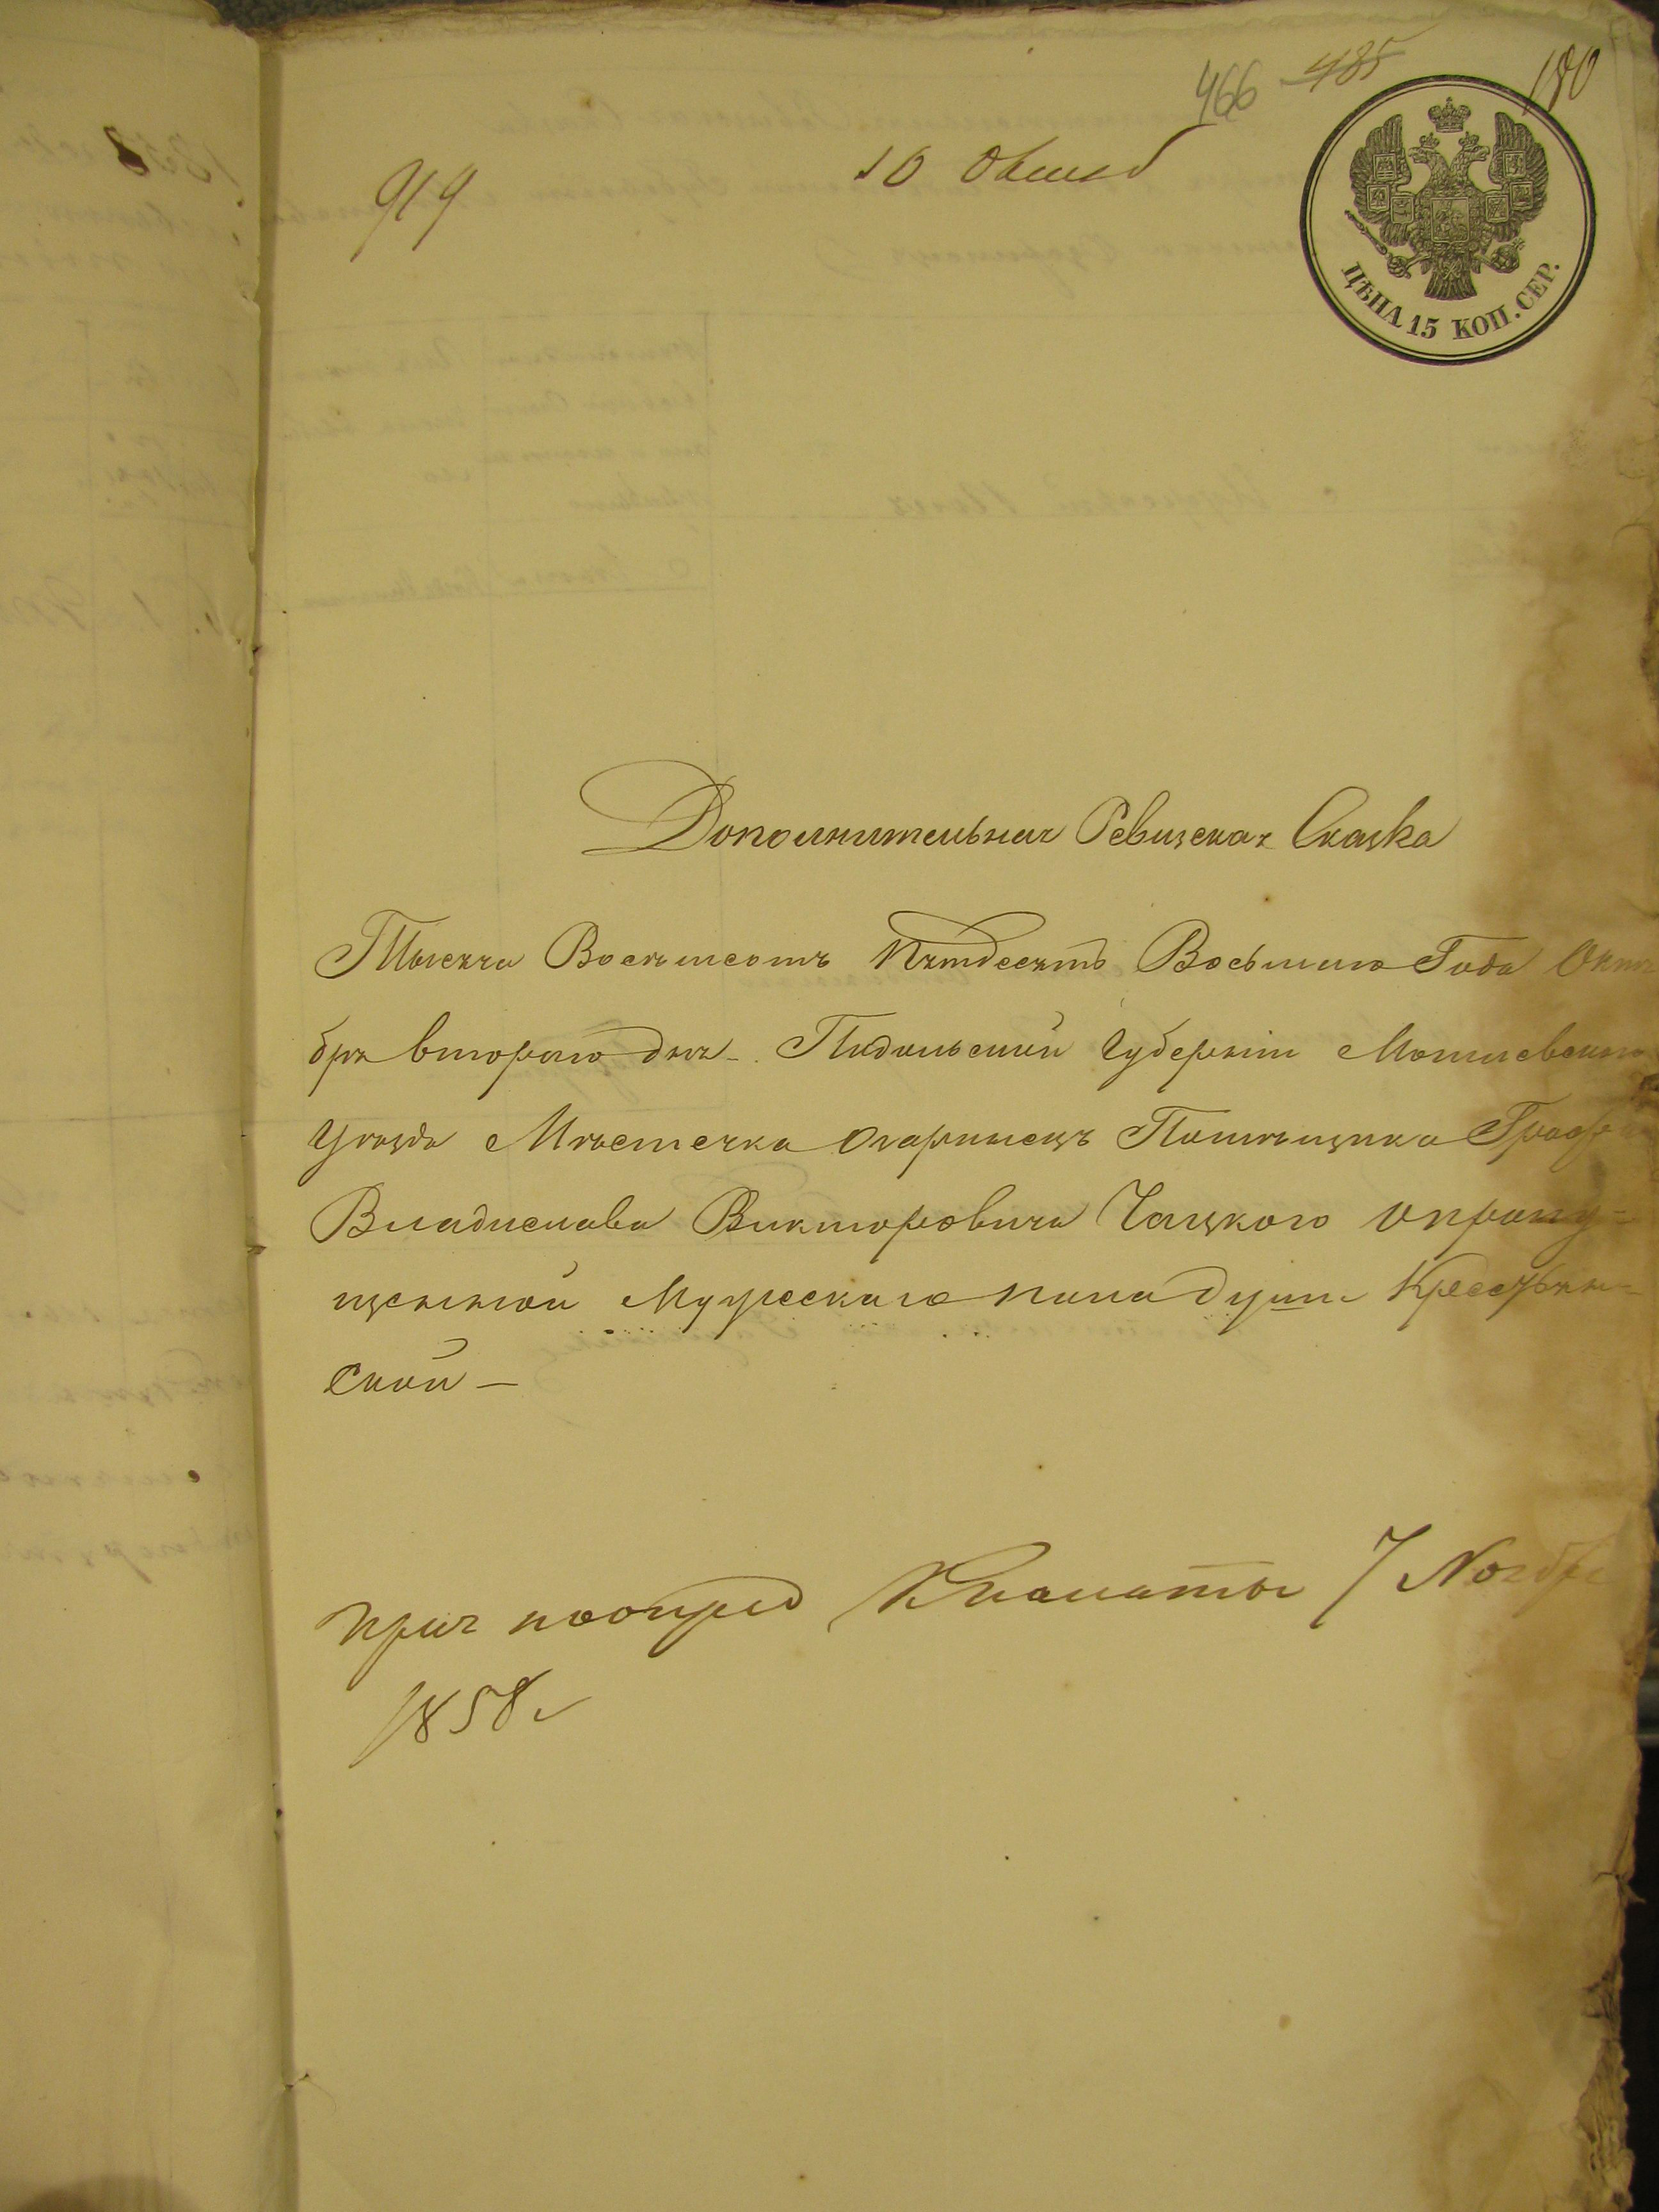 466 485 180
919
10
ЦѢНА 15 КОП. СЕР.
Дополнительная Ревизская Сказка
Тысяча Восемьсотъ Пятдесятъ Восьмаго Года Октя
бря втораго дня. Подольской Губерніи Могилевскаго
Уѣзда Мѣстечка Озаринецъ Помѣщика Графа
Владислава Викторовича Чацкого о пропу=
щенной Мужескаго пола души Крестьян=
ской —
7 Ноября
1858 г